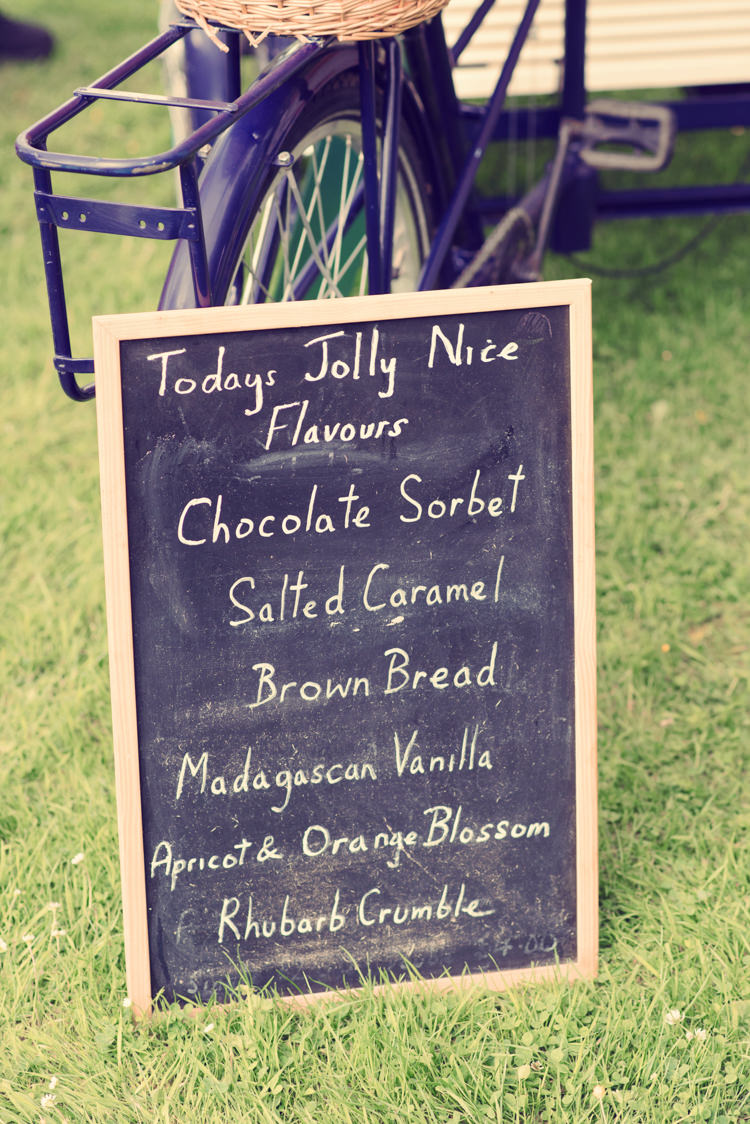 Todays Jolly Nice
Flavours
Chocolate Sorbet
Salted Caramel
Brown Bread
Madagascan Vanilla
Apricot & Orange Blossom
Rhubarb Crumble